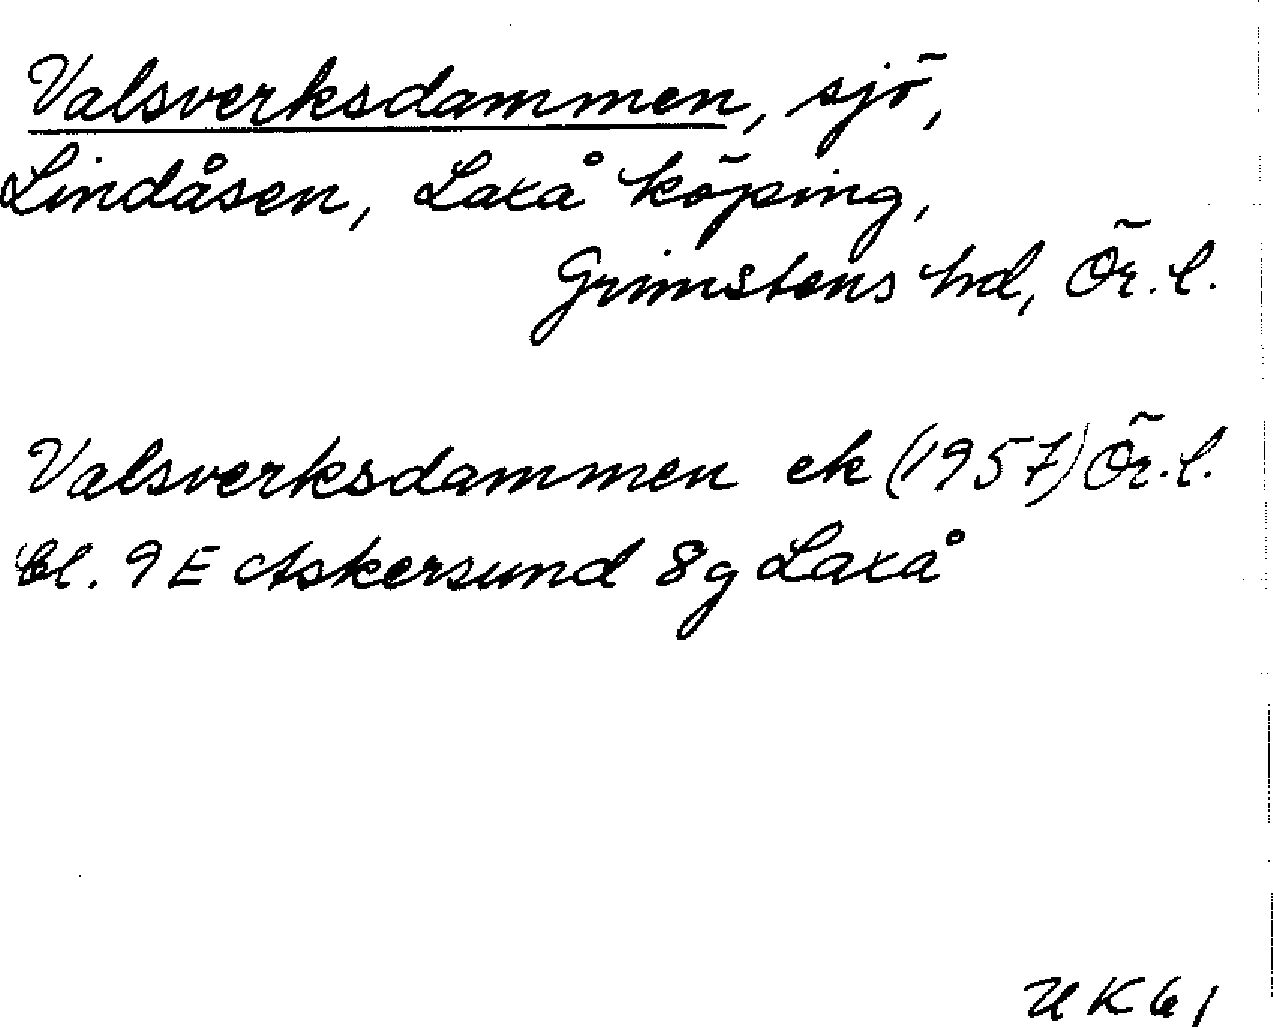 Valsverksdammen, sjö,
Lindåsen, Laxå köping,
Grimstens hd, Ör. l.
Valsverksdammen ek (1957) Ör. l.
bl. 9 E Askersund 8 g Laxå
UK 61